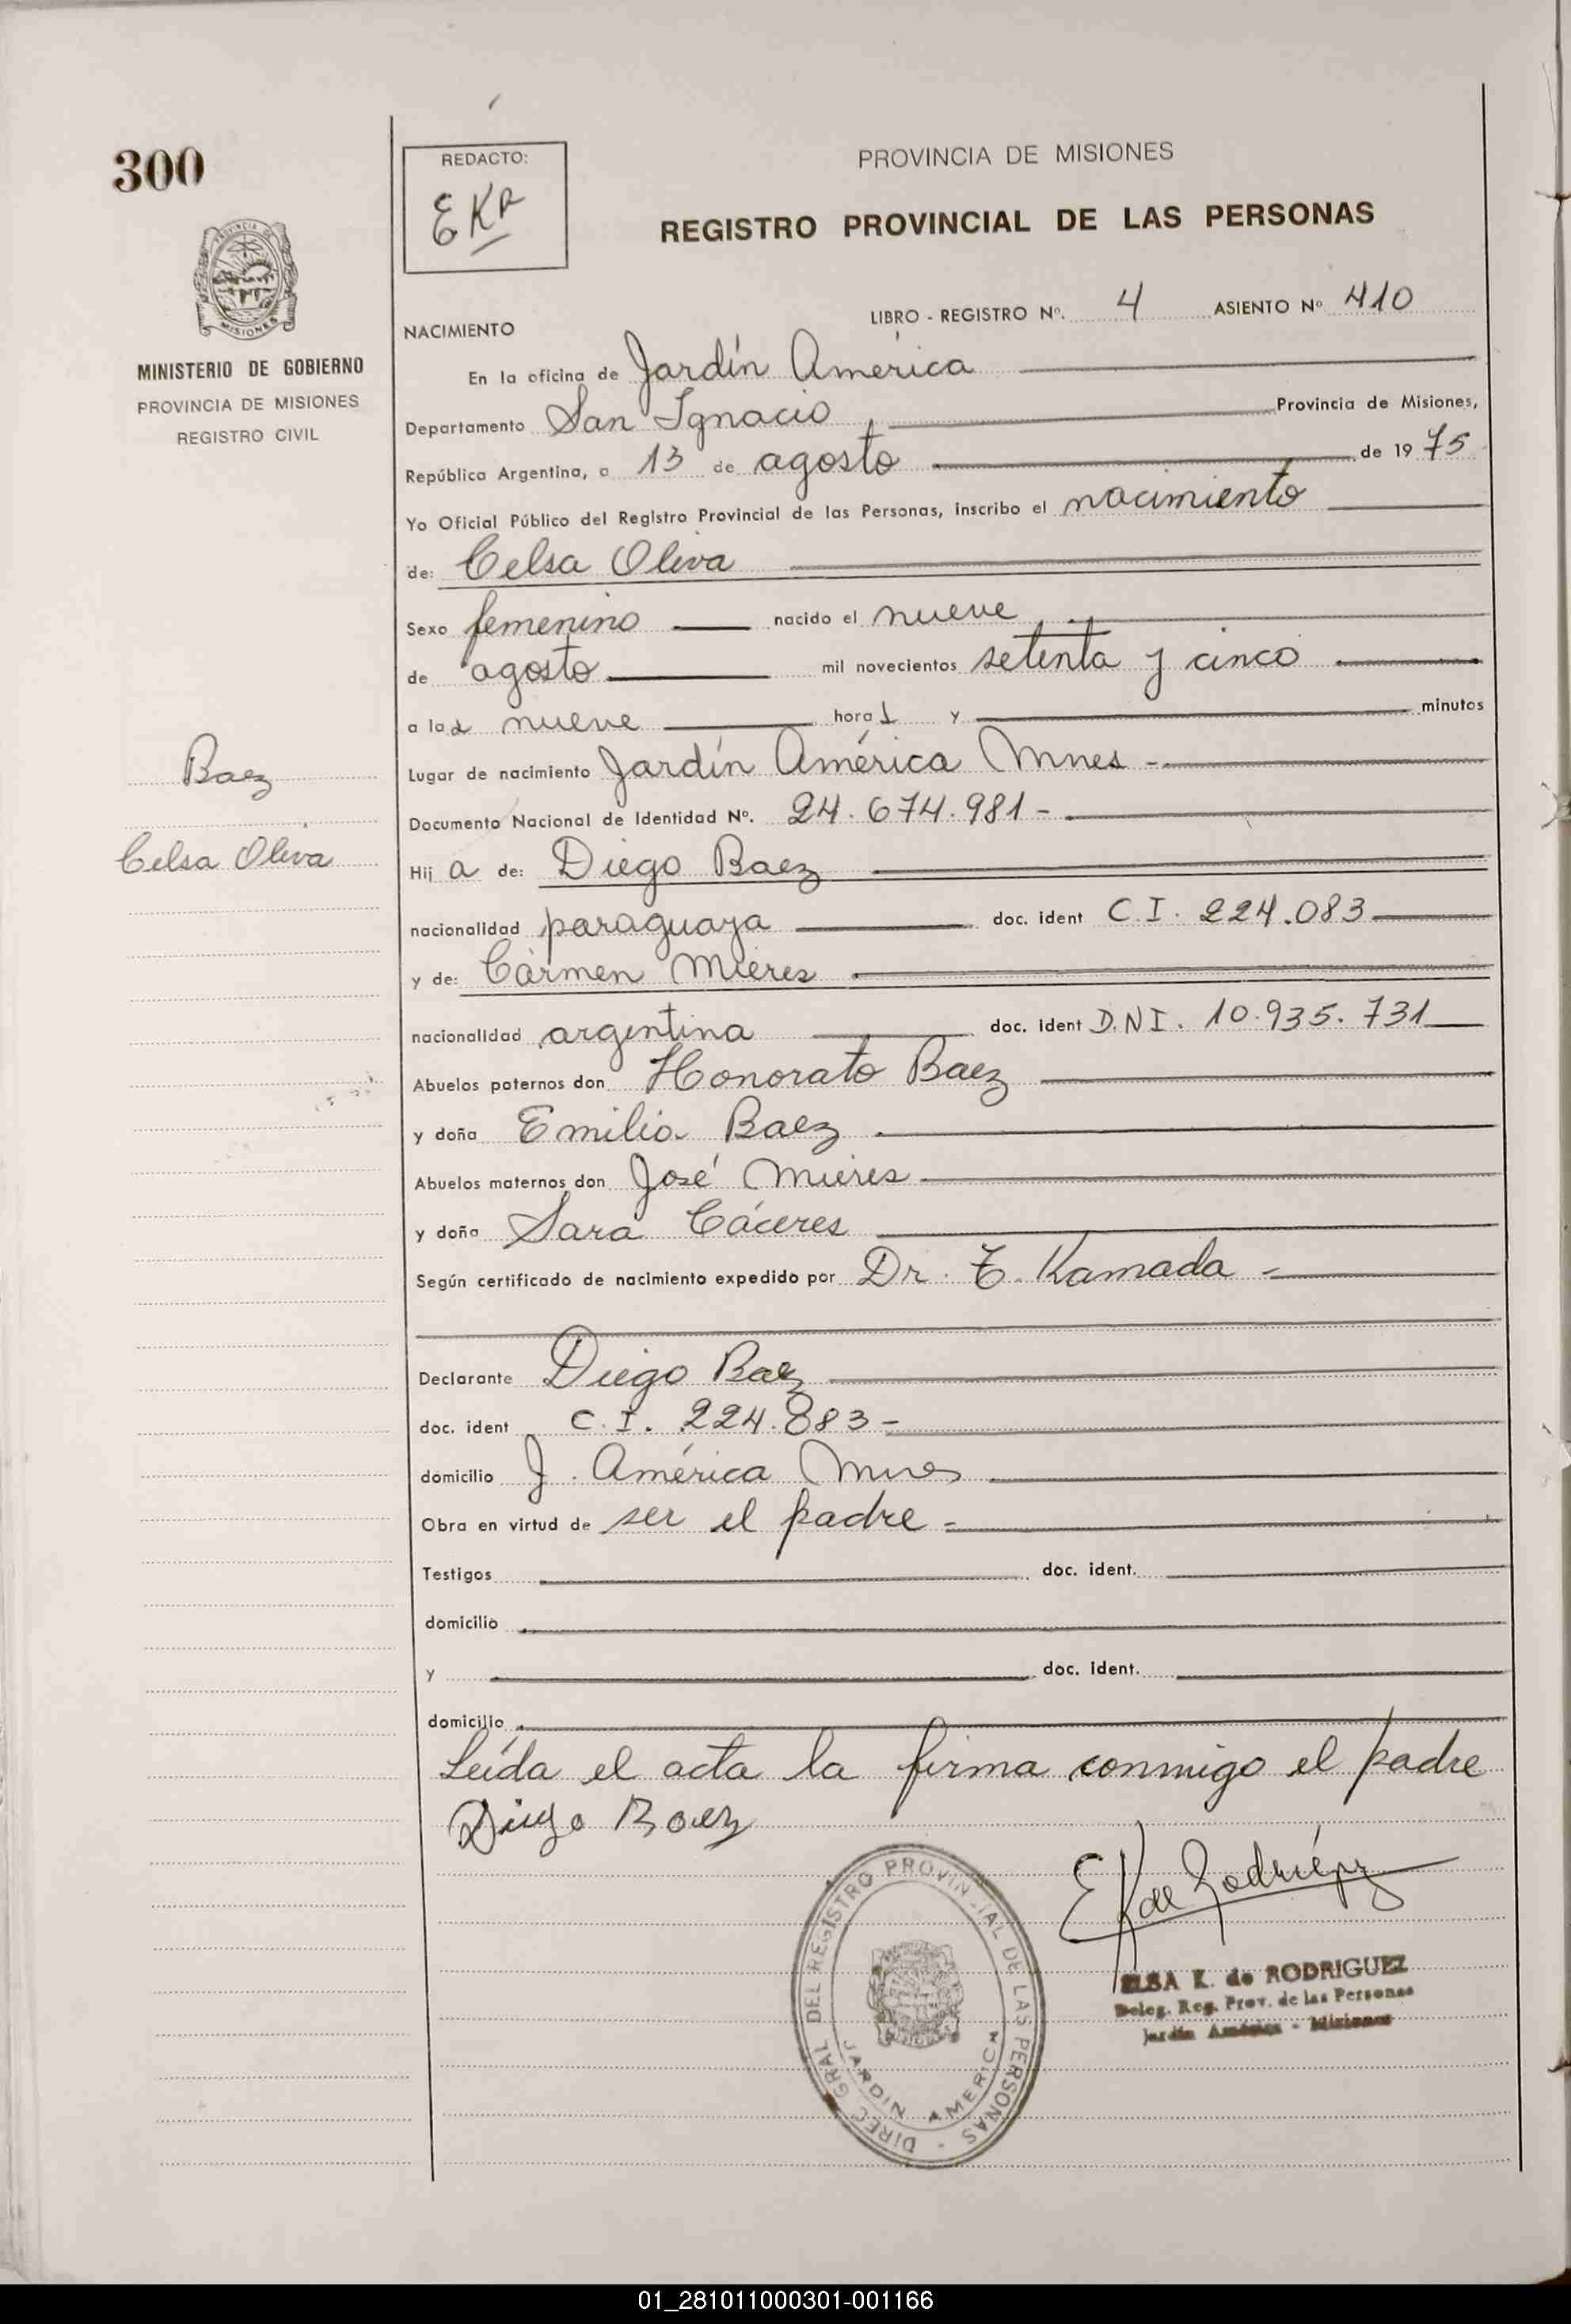 300
REDACTO:
EKR
PROVINCIA DE MISIONES
REGISTRO PROVINCIAL DE LAS PERSONAS
MINISTERIO DE GOBIERNO
PROVINCIA DE MISIONES
REGISTRO CIVIL
NACIMIENTO
LIBRO - REGISTRO Nº. 4 ASIENTO Nº 410
En la oficina de Jardín América
Departamento San Ignacio Provincia de Misiones,
República Argentina, a 13 de agosto de 1975
Yo Oficial Público del Registro Provincial de las Personas, inscribo el nacimiento
de: Celsa Oliva
Sexo femenino nacido el nueve
de agosto mil novecientos setenta y cinco
a las nueve horas y minutos
Lugar de nacimiento Jardín América Mnes -
Documento Nacional de Identidad Nº. 24.674.981-
Baez
Celsa Oliva
Hija de: Diego Baez
nacionalidad paraguaya doc. ident C.I. 224.083
y de: Cármen Mieres
nacionalidad argentina doc. ident D.N.I. 10.935.731
Abuelos paternos don Honorato Baez
y doña Emilia Baez
Abuelos maternos don José Mieres
y doña Sara Cáceres
Según certificado de nacimiento expedido por Dr. T. Kamada -
Declarante Diego Baez
doc. ident C.I. 224.083-
domicilio J. América Mnes
Obra en virtud de ser el padre -
Testigos doc. ident.
domicilio
y doc. ident.
domicilio
Leída el acta la firma conmigo el padre
Diego Baez
EK de Rodriguez
ELSA K. de RODRIGUEZ
Deleg. Reg. Prov. de las Personas
Jardín América - Misiones
DIREC GRAL DEL REGISTRO PROVINCIAL DE LAS PERSONAS -
JARDIN AMERICA
01_281011000301-001166